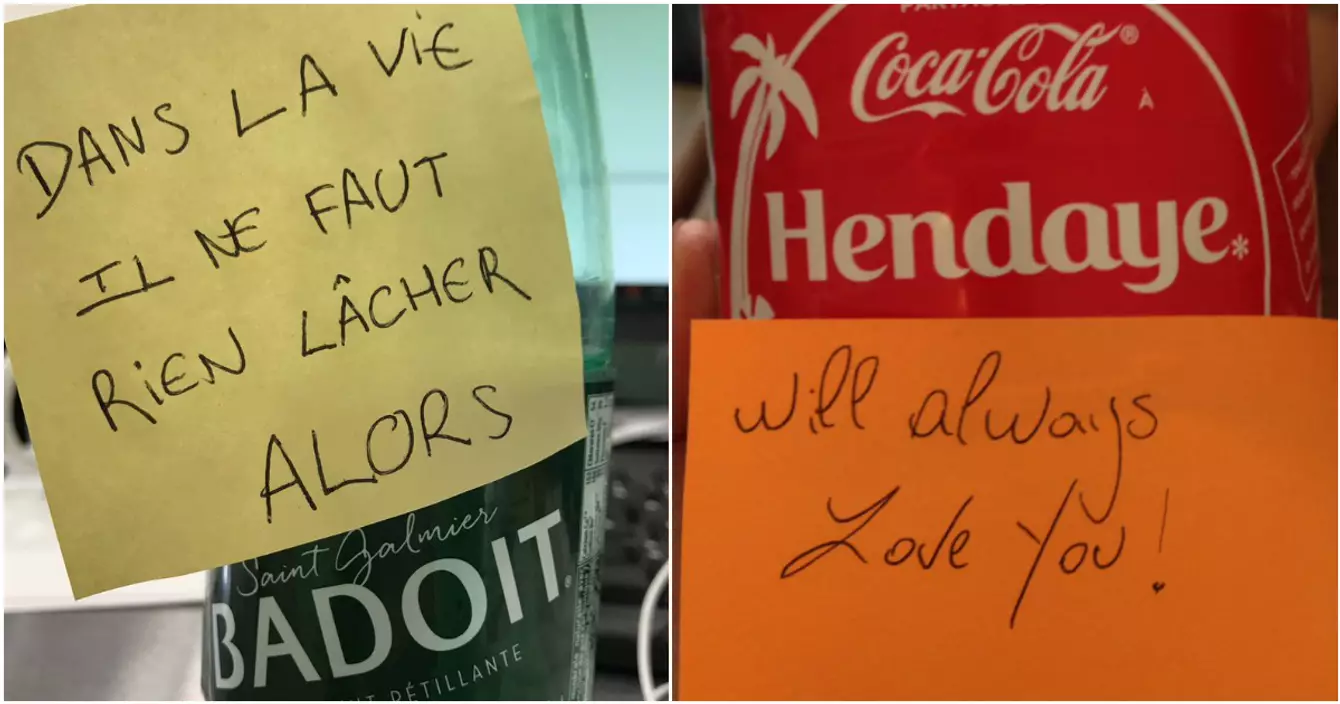 DANS LA VIE
IL NE FAUT
RIEN LÂCHER
ALORS
Saint Galmier
BADOIT®
PÉTILLANTE
Coca-Cola®
À
Hendaye*
will always
Love You!